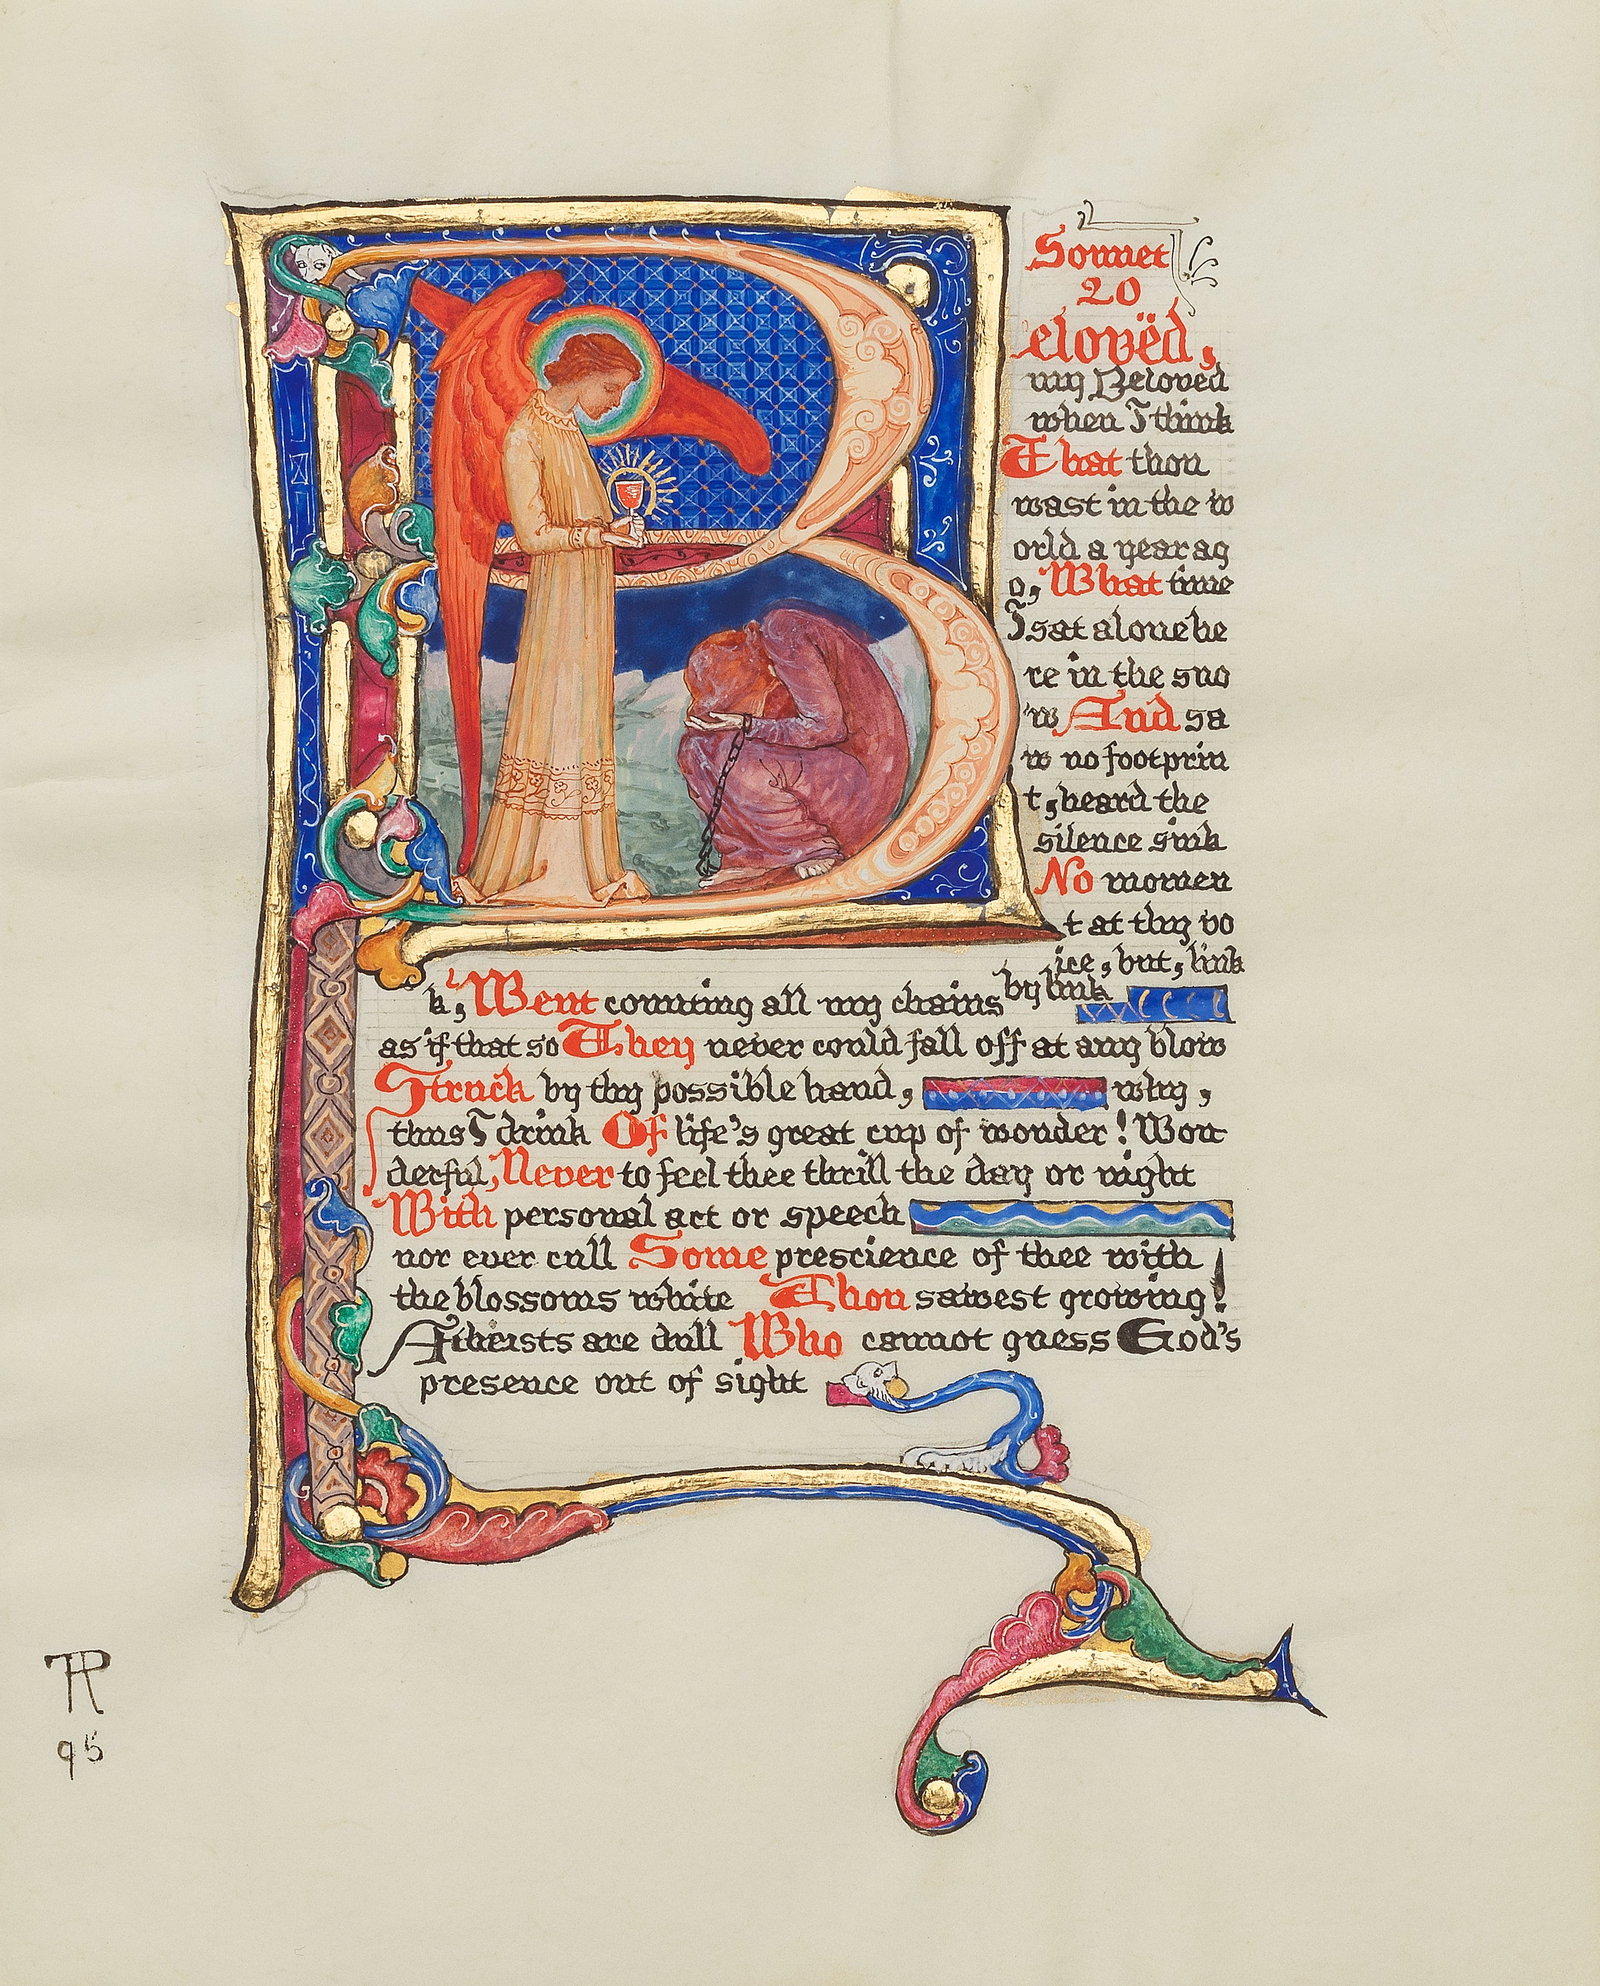 Sonnet
20
Belovëd,
my Beloved
when I think
That thou
wast in the w
orld a year ag
o, What time
I sat alone he
re in the sno
w And sa
w no footprin
t, heard the
silence sink
No momen
t at thy vo
ice, but, link
by link
k, Went counting all my chains
as if that so They never could fall off at any blow
Struck by thy possible hand, why,
thus I drink Of life's great cup of wonder! Won
derful, Never to feel thee thrill the day or night
With personal act or speech
nor ever cull Some prescience of thee with
the blossoms white Thou sawest growing!
Atheists are dull Who cannot guess God's
presence out of sight
95